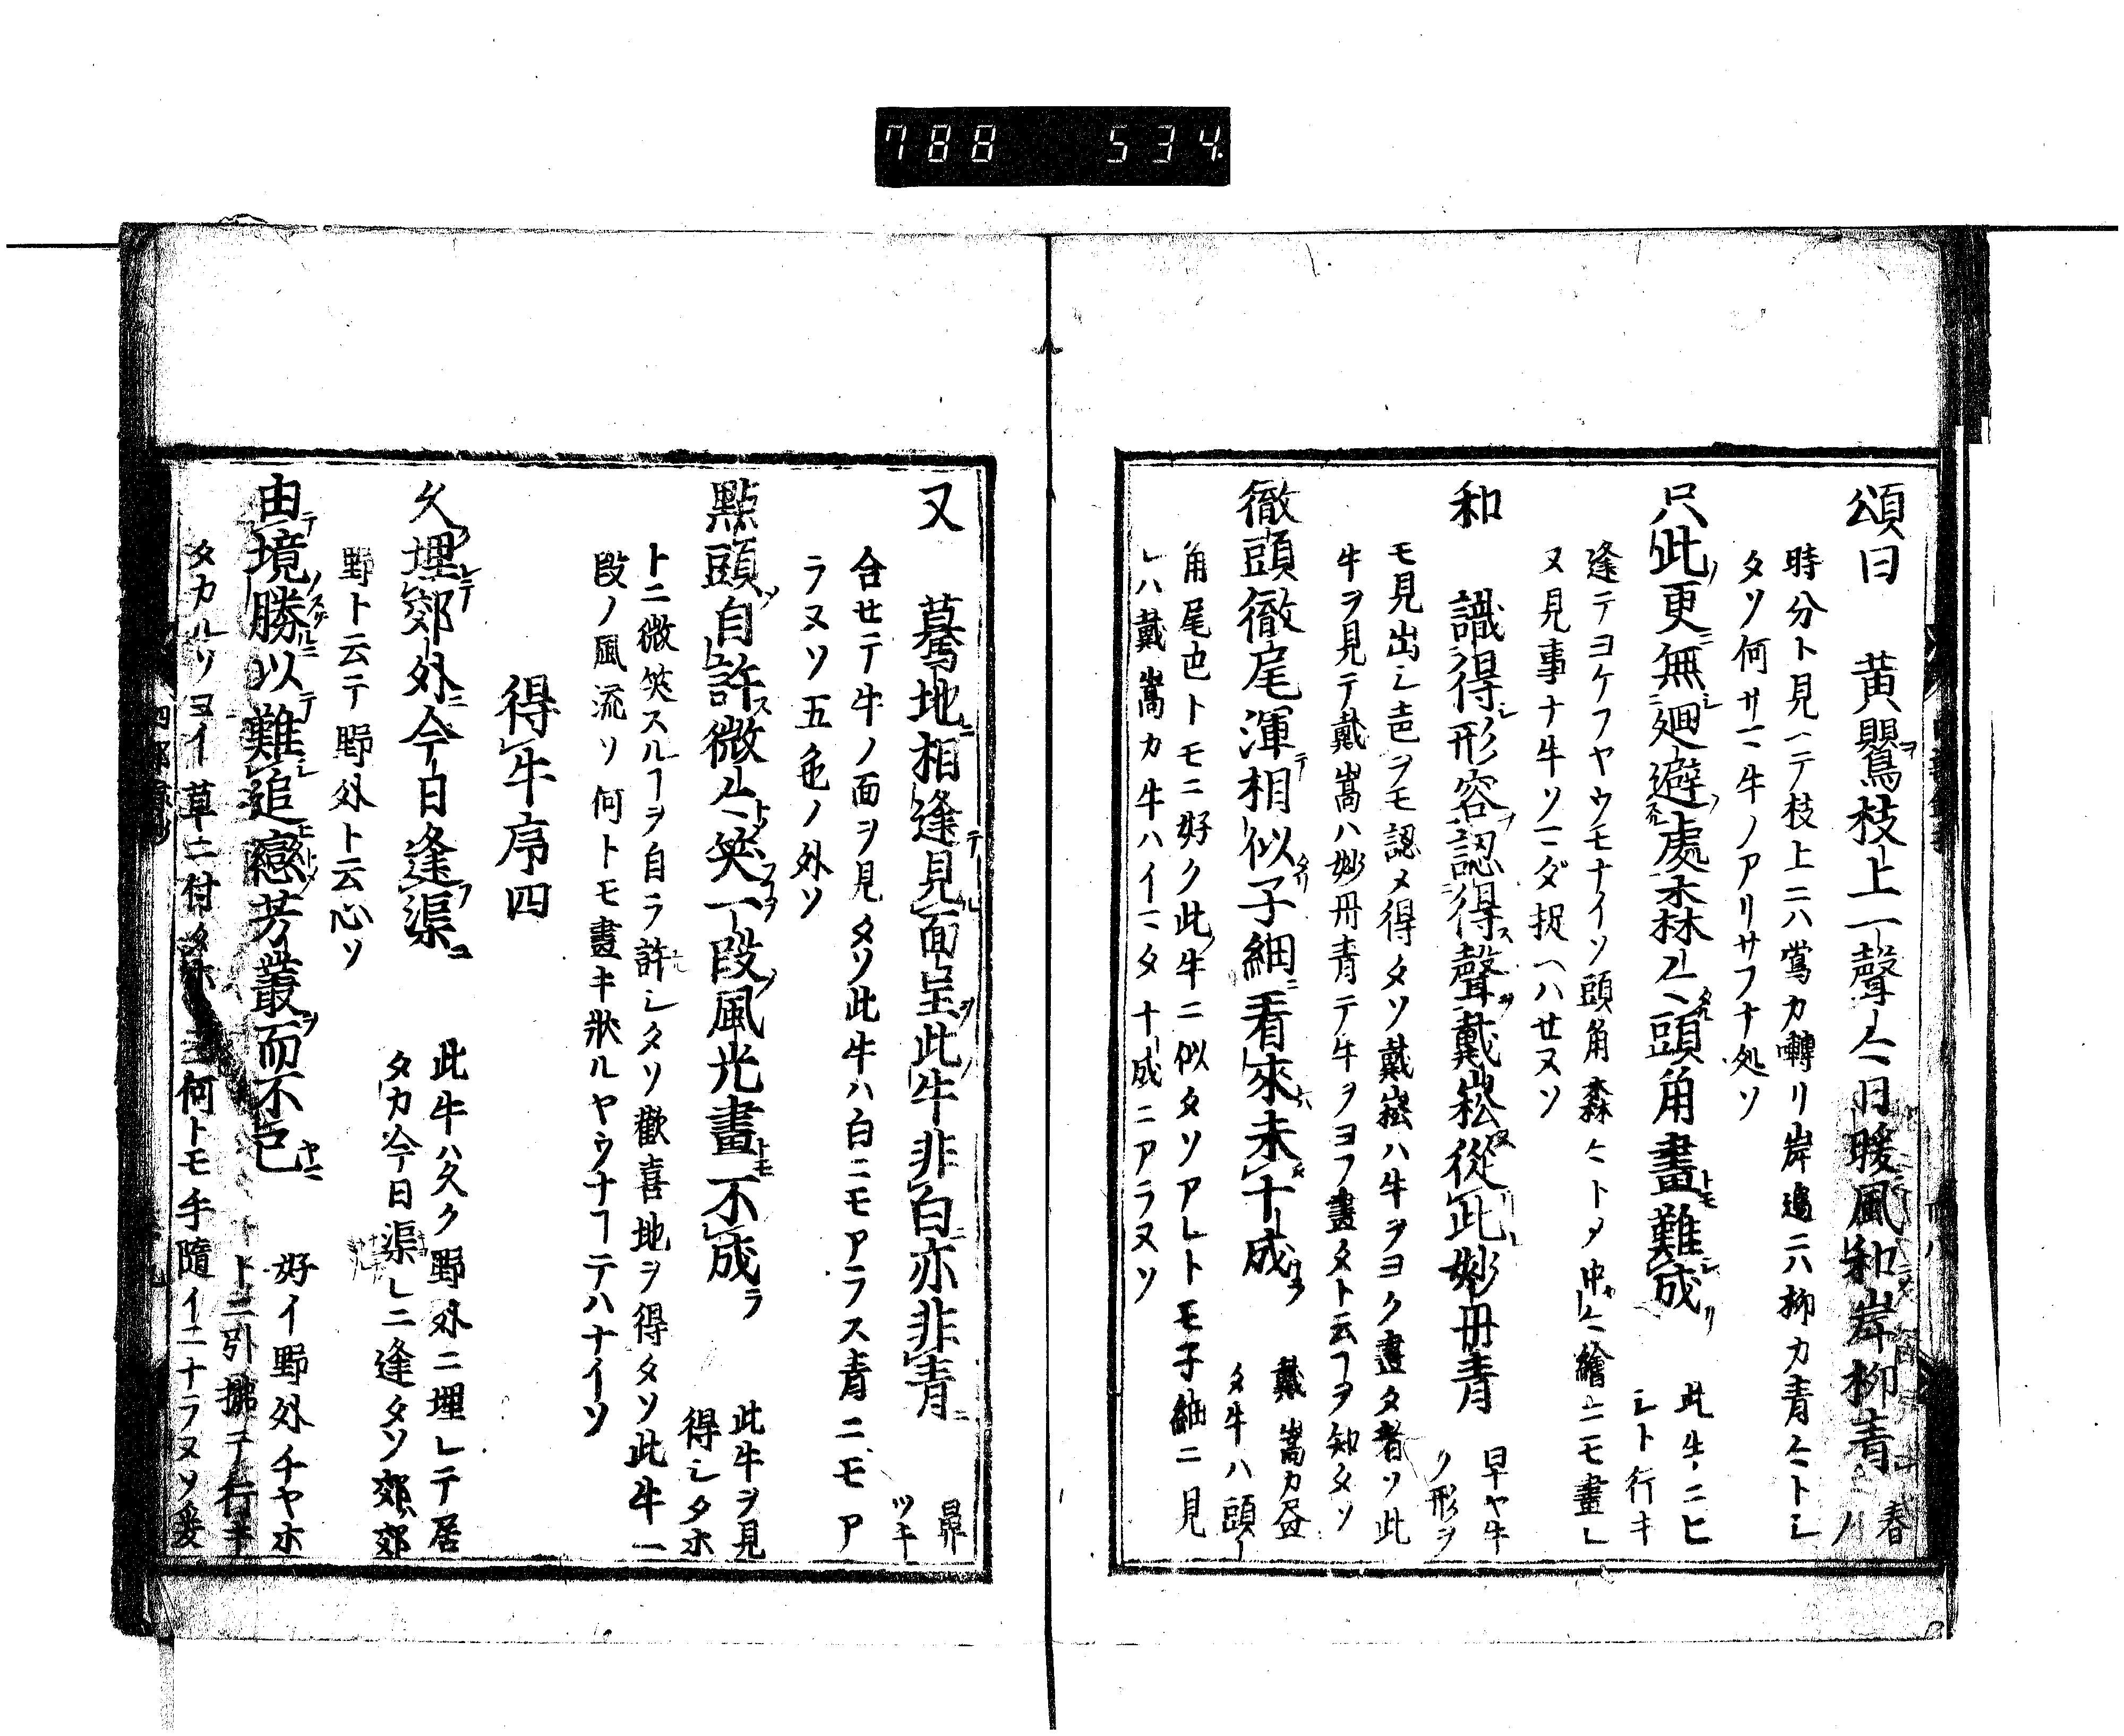 788 534
頌曰 黄鸎枝上一聲〻日暖風和岸柳青 春ハ
時分ト見ヘテ枝上ニハ鶯カ囀リ岸邉ニハ柳カ青〻トシ
タソ何サマ牛ノアリサフナ処ソ
只此更無廻避處森〻頭角畫難成 此牛ニヒシト行キ
逢テヨケフヤウモナイソ頭角森〻トメ中〻繪ニモ畫レ
ヌ見事ナ牛ソマダ捉ヘハせヌソ
和 識得形容認得聲戴崧從此妙丹青 早ヤ牛ノ形ヲ
モ見出シ声ヲモ認メ得タソ戴崧ハ牛ヲヨク畫タ者ソ此
牛ヲ見テ戴嵩ハ妙丹青テ牛ヲヨフ畫タト云フヿヲ知タソ
徹頭徹尾渾相似子細看來未十成 戴嵩カ畫タ牛ハ頭
角尾也トモニ好ク此牛ニ似タソアレトモ子細ニ見
レハ戴嵩カ牛ハイマタ十成ニアラヌソ
又 驀地相逢見面呈此牛非白亦非青 鼻ツキ
合せテ牛ノ面ヲ見タソ此牛ハ白ニモアラス青ニモア
ラヌソ五色ノ外ソ
點頭自許微〻笑一段風光畫不成 此牛ヲ見得シタホ
トニ微笑スルヿヲ自ラ許シタソ歡喜地ヲ得タソ此牛一
段ノ風流ソ何トモ畫キ狀ルヤウナヿテハナイソ
得牛序四
久埋郊外今日逢渠 此牛ハ久ク野外ニ埋レテ居タカ今日渠レニ逢タソ郊ハ郊
野ト云テ野外ト云心ソ
由境勝以難追戀芳叢而不已 好イ野外チヤホトニ引拂テ行キ
タカルソヨイ草ニ付タホトニ何トモ手隨イニナラヌソ爰